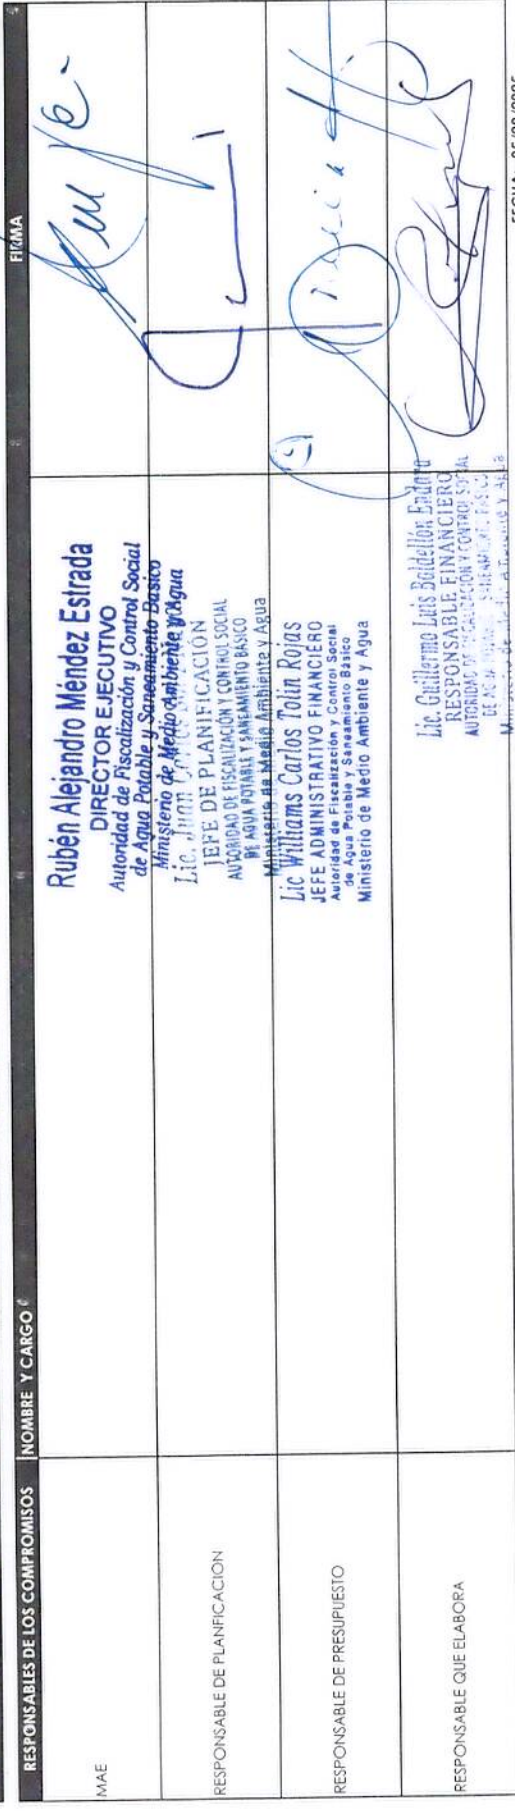 RESPONSABLES DE LOS COMPROMISOS NOMBRE Y CARGO FIRMA
MAE
Rubén Alejandro Méndez Estrada
DIRECTOR EJECUTIVO
Autoridad de Fiscalización y Control Social
de Agua Potable y Saneamiento Basico
Ministerio de Medio Ambiente y Agua
RESPONSABLE DE PLANFICACION
Lic. Juan
JEFE DE PLANIFICACIÓN
AUTORIDAD DE FISCALIZACIÓN Y CONTROL SOCIAL
DE AGUA POTABLE Y SANEAMIENTO BASICO
Ministerio de Medio Ambiente y Agua
RESPONSABLE DE PRESUPUESTO
Lic Williams Carlos Tolin Rojas
JEFE ADMINISTRATIVO FINANCIERO
Autoridad de Fiscalización y Control Social
de Agua Potable y Saneamiento Básico
Ministerio de Medio Ambiente y Agua
RESPONSABLE QUE ELABORA
Lic. Guillermo Luis Baldellón Endara
RESPONSABLE FINANCIERO
AUTORIDAD DE FISCALIZACIÓN Y CONTROL SOCIAL